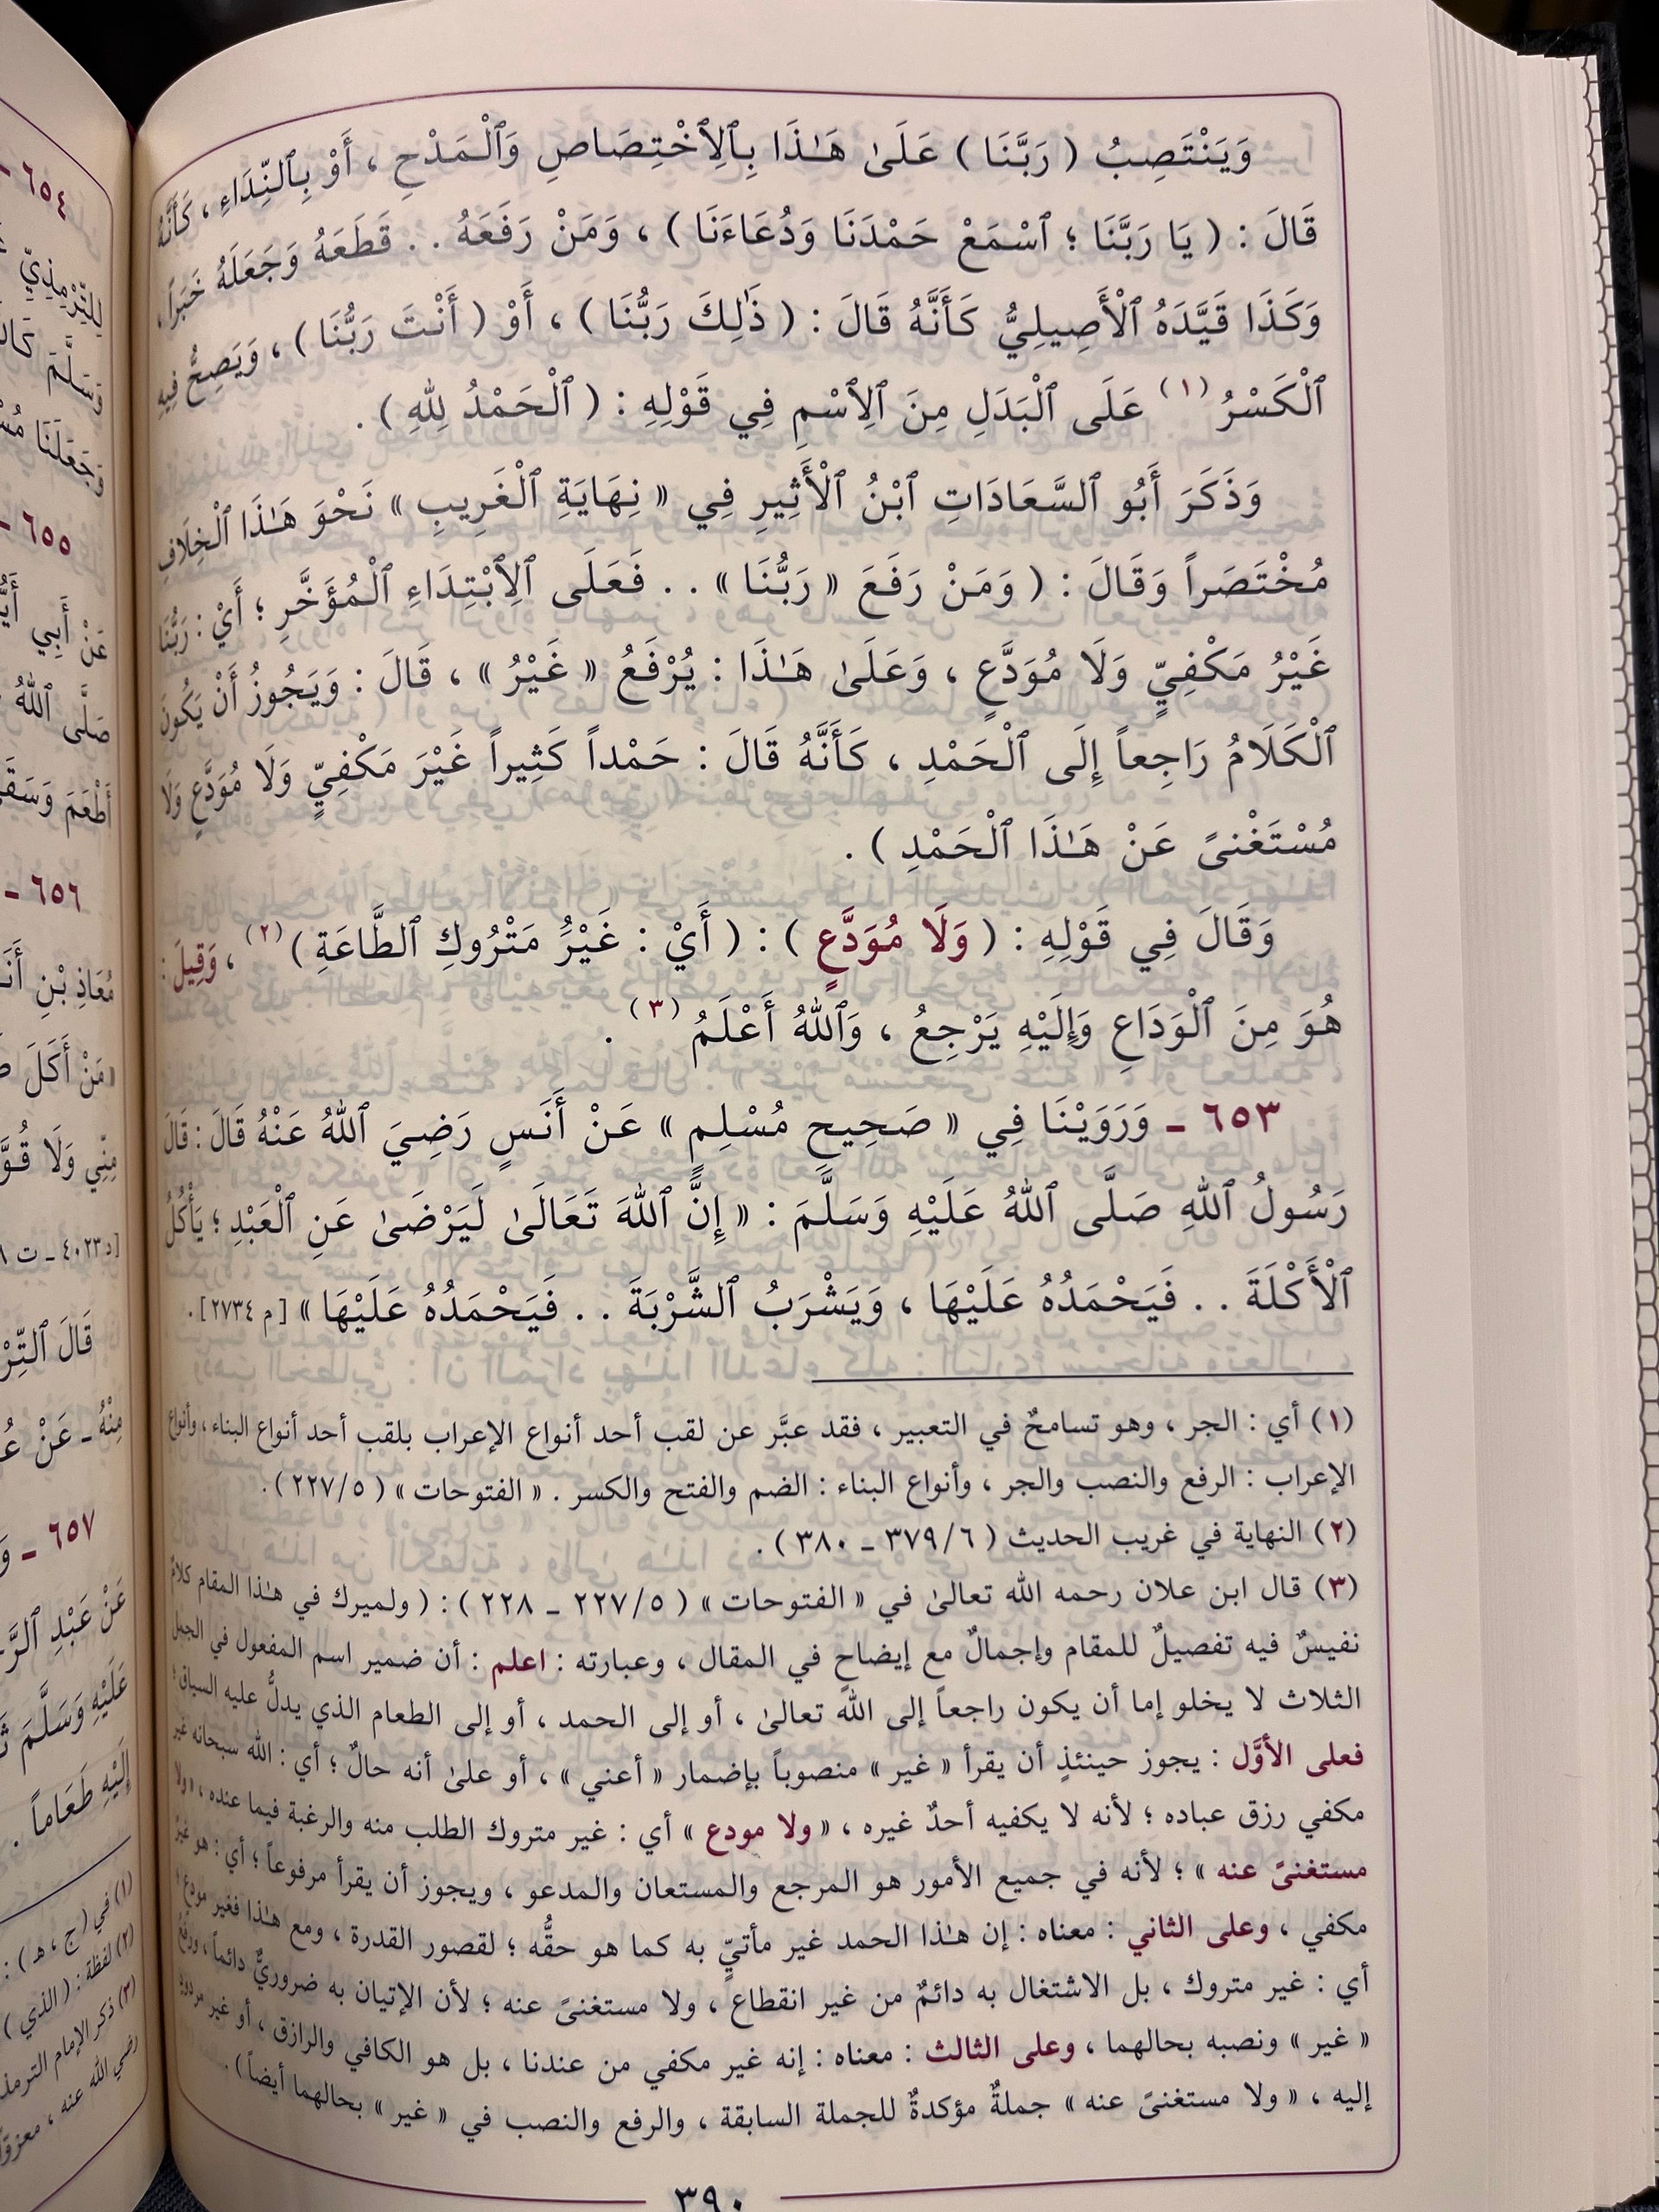 وَيَنْتَصِبُ ( رَبَّنَا ) عَلَىٰ هَـٰذَا بِٱلِٱخْتِصَاصِ وَٱلْمَدْحِ ، أَوْ بِٱلنِّدَاءِ ، كَأَنَّهُ
قَالَ : ( يَا رَبَّنَا ؛ ٱسْمَعْ حَمْدَنَا وَدُعَاءَنَا ) ، وَمَنْ رَفَعَهُ . . قَطَعَهُ وَجَعَلَهُ خَبَراً ،
وَكَذَا قَيَّدَهُ ٱلْأَصِيلِيُّ كَأَنَّهُ قَالَ : ( ذَٰلِكَ رَبُّنَا ) ، أَوْ ( أَنْتَ رَبُّنَا ) ، وَيَصِحُّ فِيهِ
ٱلْكَسْرُ (١) عَلَى ٱلْبَدَلِ مِنَ ٱلِٱسْمِ فِي قَوْلِهِ : ( ٱلْحَمْدُ لِلهِ ) .
وَذَكَرَ أَبُو ٱلسَّعَادَاتِ ٱبْنُ ٱلْأَثِيرِ فِي « نِهَايَةِ ٱلْغَرِيبِ » نَحْوَ هَـٰذَا ٱلْخِلَافِ
مُخْتَصَراً وَقَالَ : ( وَمَنْ رَفَعَ « رَبُّنَا » . . فَعَلَى ٱلِٱبْتِدَاءِ ٱلْمُؤَخَّرِ ؛ أَيْ : رَبُّنَا
غَيْرُ مَكْفِيٍّ وَلَا مُوَدَّعٍ ، وَعَلَىٰ هَـٰذَا : يُرْفَعُ « غَيْرُ » ، قَالَ : وَيَجُوزُ أَنْ يَكُونَ
ٱلْكَلَامُ رَاجِعاً إِلَى ٱلْحَمْدِ ، كَأَنَّهُ قَالَ : حَمْداً كَثِيراً غَيْرَ مَكْفِيٍّ وَلَا مُوَدَّعٍ وَلَا
مُسْتَغْنىً عَنْ هَـٰذَا ٱلْحَمْدِ ) .
وَقَالَ فِي قَوْلِهِ : ( وَلَا مُوَدَّعٍ ) : ( أَيْ : غَيْرُ مَتْرُوكِ ٱلطَّاعَةِ ) (٢) ، وَقِيلَ :
هُوَ مِنَ ٱلْوَدَاعِ وَإِلَيْهِ يَرْجِعُ ، وَٱللهُ أَعْلَمُ (٣) .
٦٥٣ ـ وَرَوَيْنَا فِي « صَحِيحِ مُسْلِمٍ » عَنْ أَنَسٍ رَضِيَ ٱللهُ عَنْهُ قَالَ : قَالَ
رَسُولُ ٱللهِ صَلَّى ٱللهُ عَلَيْهِ وَسَلَّمَ : « إِنَّ ٱللهَ تَعَالَىٰ لَيَرْضَىٰ عَنِ ٱلْعَبْدِ ؛ يَأْكُلُ
ٱلْأَكْلَةَ . . فَيَحْمَدُهُ عَلَيْهَا ، وَيَشْرَبُ ٱلشَّرْبَةَ . . فَيَحْمَدُهُ عَلَيْهَا » [م ٢٧٣٤] .
(١) أي : الجر ، وهو تسامحٌ في التعبير ، فقد عبَّر عن لقب أحد أنواع الإعراب بلقب أحد أنواع البناء ، وأنواع
الإعراب : الرفع والنصب والجر ، وأنواع البناء : الضم والفتح والكسر . « الفتوحات » ( ٢٢٧/٥ ) .
(٢) النهاية في غريب الحديث ( ٣٧٩/٦ ـ ٣٨٠ ) .
(٣) قال ابن علان رحمه الله تعالىٰ في « الفتوحات » ( ٢٢٧/٥ ـ ٢٢٨ ) : ( ولميرك في هـٰذا المقام كلامٌ
نفيسٌ فيه تفصيلٌ للمقام وإجمالٌ مع إيضاحٍ في المقال ، وعبارته : اعلم : أن ضمير اسم المفعول في الجمل
الثلاث لا يخلو إما أن يكون راجعاً إلى الله تعالىٰ ، أو إلى الحمد ، أو إلى الطعام الذي يدلُّ عليه السياق ؛
فعلى الأوَّل : يجوز حينئذٍ أن يقرأ « غير » منصوباً بإضمار « أعني » ، أو علىٰ أنه حالٌ ؛ أي : الله سبحانه غير
مكفي رزق عباده ؛ لأنه لا يكفيه أحدٌ غيره ، « ولا مودع » أي : غير متروك الطلب منه والرغبة فيما عنده ، « ولا
مستغنىً عنه » ؛ لأنه في جميع الأمور هو المرجع والمستعان والمدعو ، ويجوز أن يقرأ مرفوعاً ؛ أي : هو غيرُ
مكفي ، وعلى الثاني : معناه : إن هـٰذا الحمد غير مأتيٍّ به كما هو حقُّه ؛ لقصور القدرة ، ومع هـٰذا فغير مودع ؛
أي : غير متروك ، بل الاشتغال به دائمٌ من غير انقطاع ، ولا مستغنىً عنه ؛ لأن الإتيان به ضروريٌّ دائماً ، ورفعُ
« غير » ونصبه بحالهما ، وعلى الثالث : معناه : إنه غير مكفي من عندنا ، بل هو الكافي والرازق ، أو غير مردود
إليه ، « ولا مستغنىً عنه » جملةٌ مؤكدةٌ للجملة السابقة ، والرفع والنصب في « غير » بحالهما أيضاً ) .
٣٩٠
٦٥٤ ـ
لِلتِّرْمِذِيِّ
وَسَلَّمَ
وَجَعَلَنَا
٦٥٥ ـ
عَنْ أَبِي
صَلَّى ٱللهُ
أَطْعَمَ وَسَقَىٰ
٦٥٦ ـ
مُعَاذِ بْنِ
« مَنْ أَكَلَ
مِنِّي وَلَا
[د ٤٠٢٣ ـ ت
قَالَ
مِنْهُ ـ عَنْ
٦٥٧ ـ
عَنْ عَبْدِ
عَلَيْهِ وَسَلَّمَ
إِلَيْهِ طَعَاماً .
(١) في ( ج ، هـ ) :
(٢) لفظة : ( الذي )
(٣) ذكر الإمام
رضي الله عنه ،